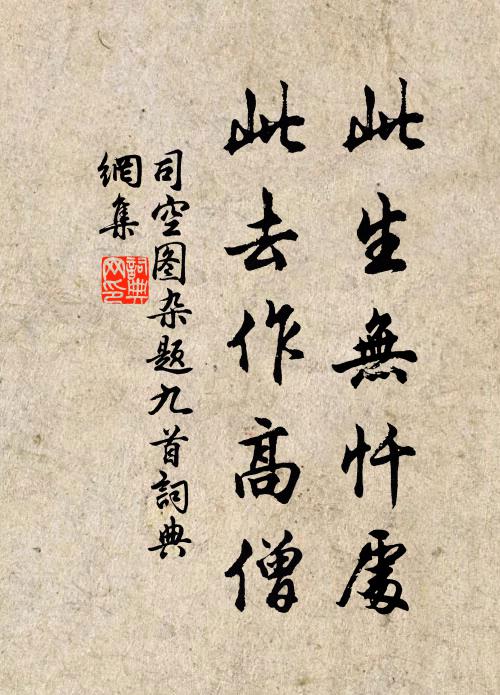 此生無忏處
此去作高僧
司空图杂题九首詞典
網集
詞典網印